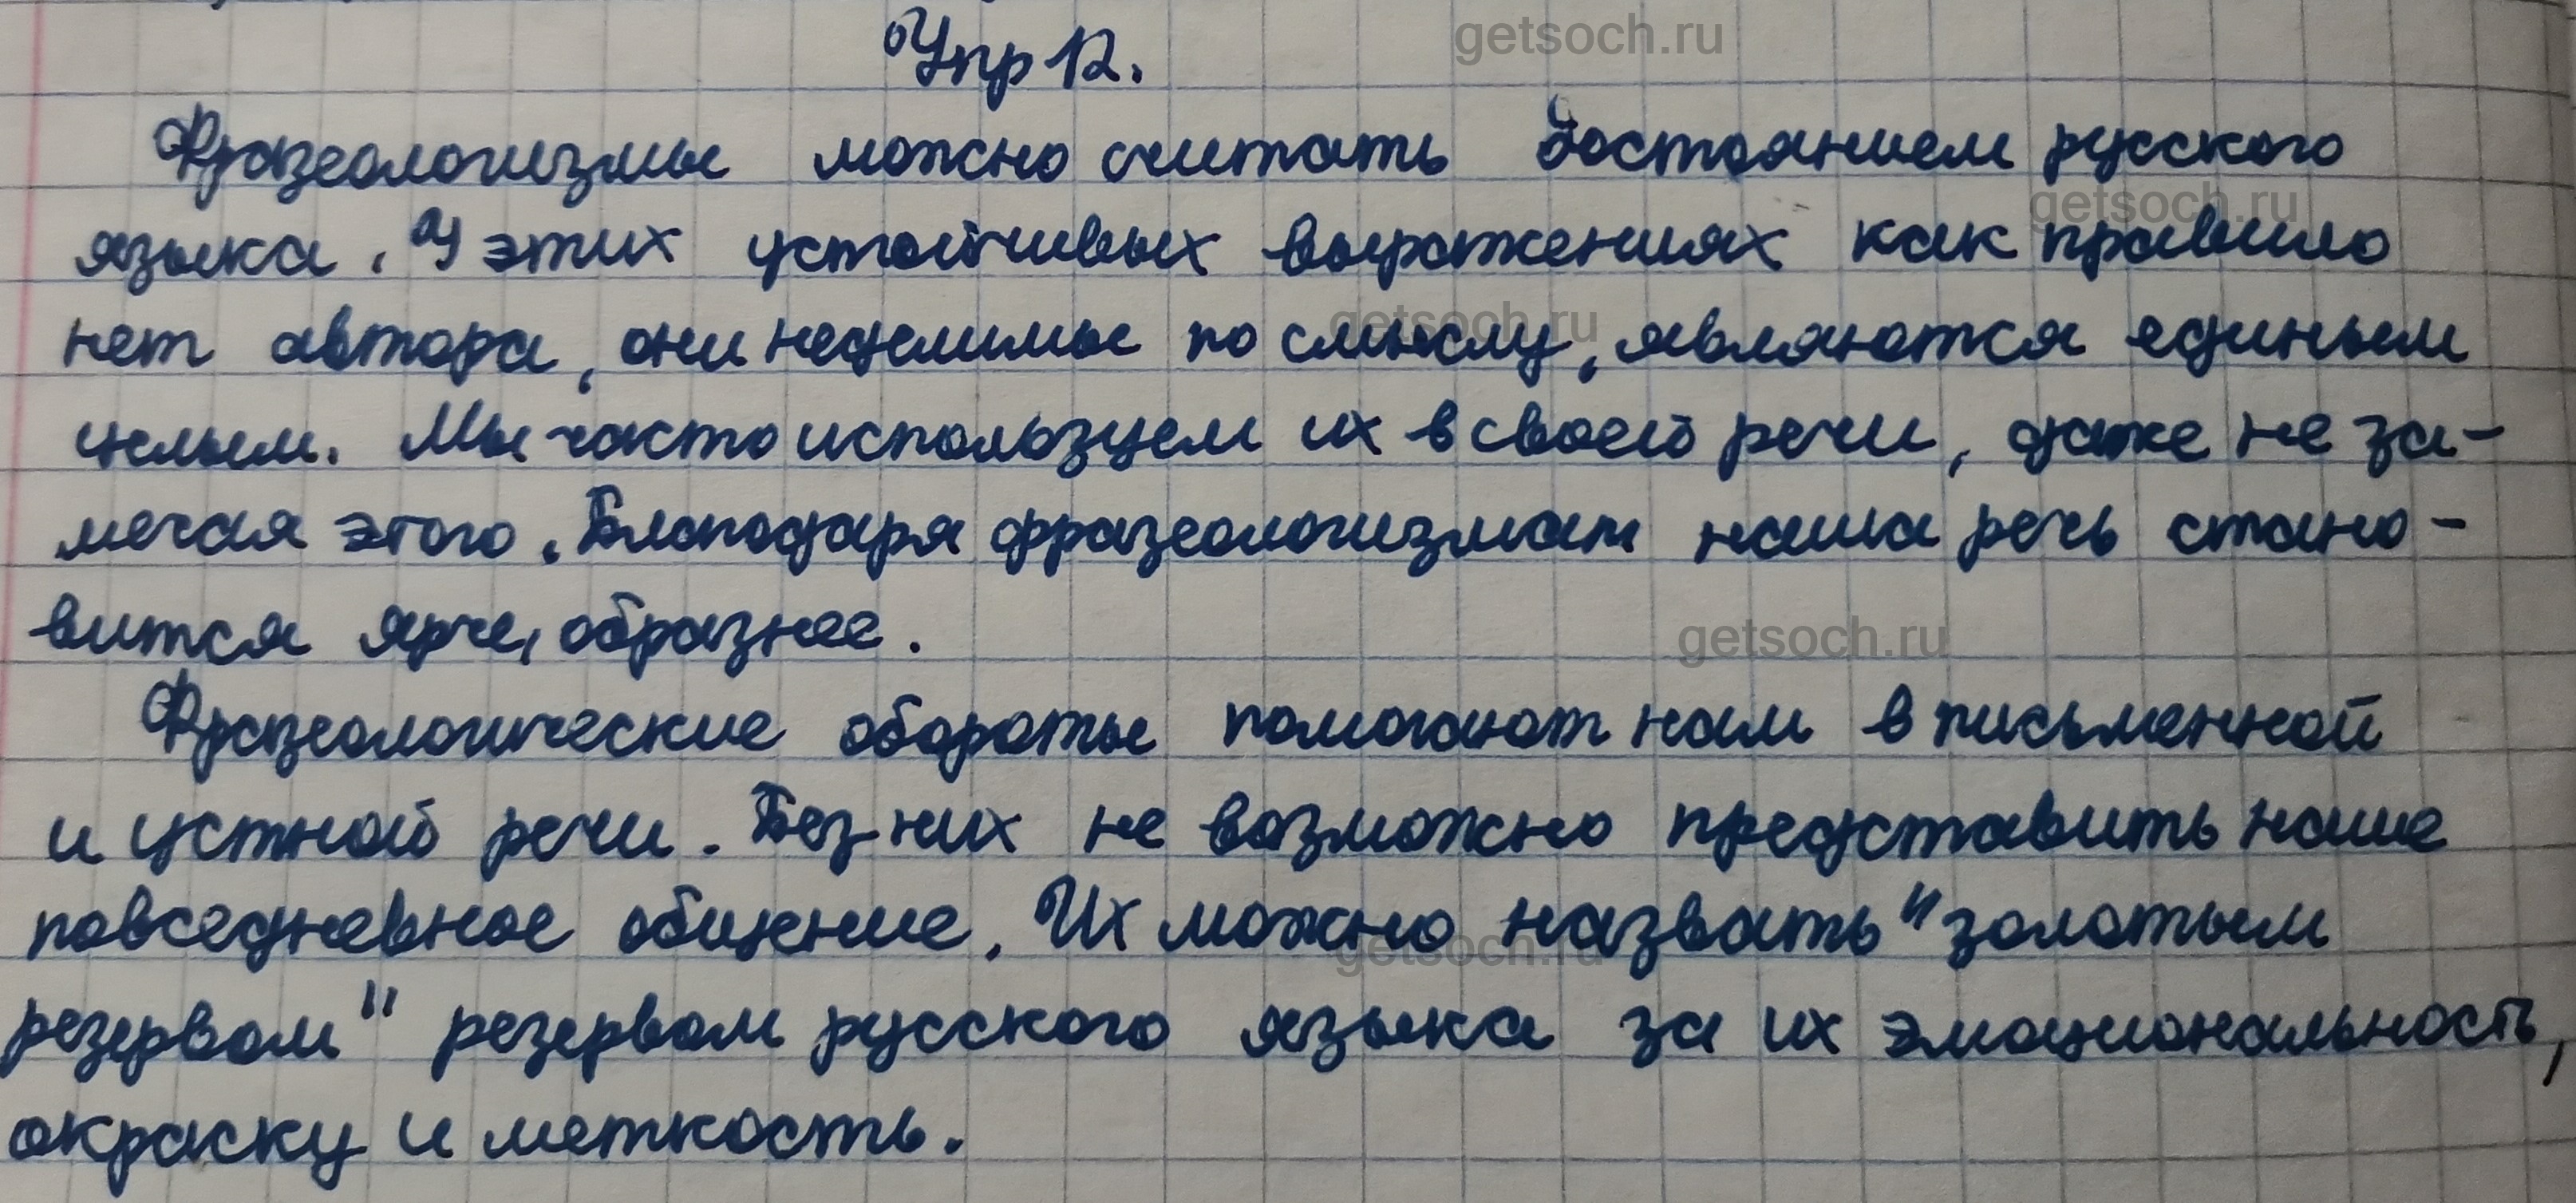 Упр 12.
getsoch.ru
Фразеологизмы можно считать достоянием русского
getsoch.ru
языка. У этих устойчивых выражениях как правило
getsoch.ru
нет автора, они неделимы по смыслу, являются единым
целым. Мы часто используем их в своей речи, даже не за-
мечая этого. Благодаря фразеологизмам наша речь стано-
вится ярче, образнее.
getsoch.ru
Фразеологические обороты помогают нам в письменной
и устной речи. Без них не возможно представить наше
повседневное общение. Их можно назвать "золотым
getsoch.ru
резервом" резервом русского языка за их эмоциональность,
окраску и меткость.